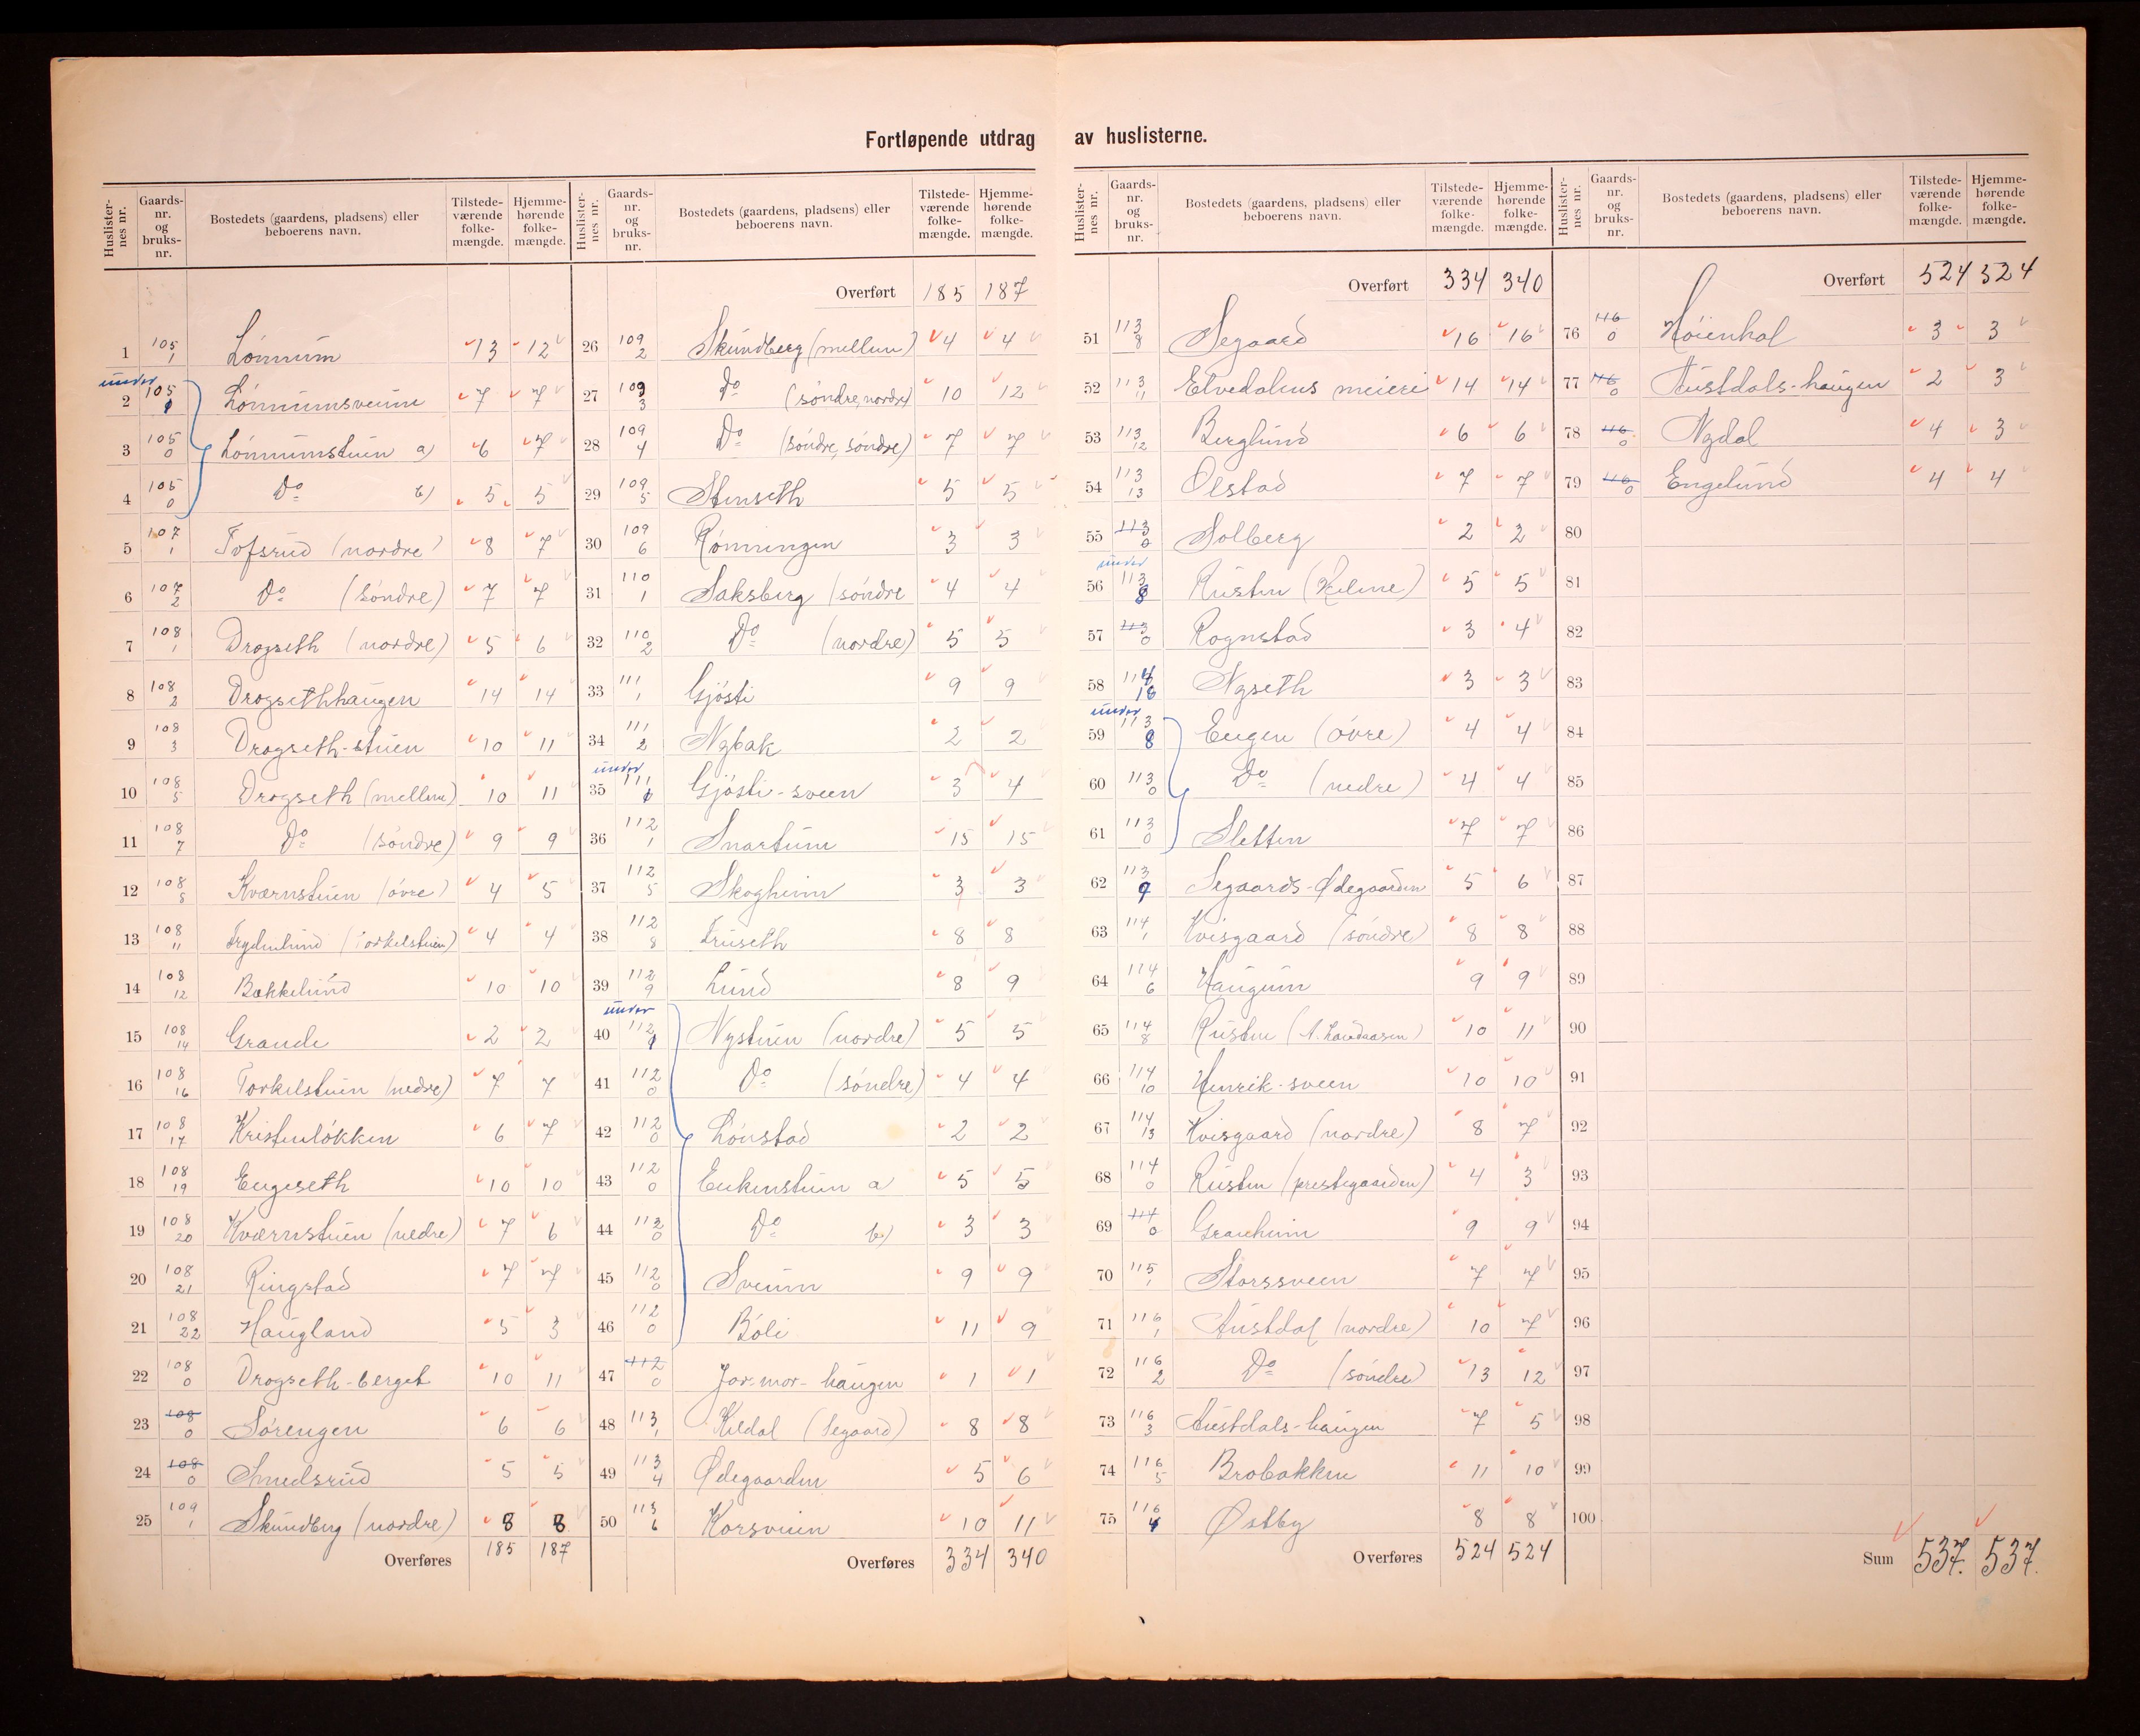 Fortløpende utdrag av huslisterne.
Huslister-nes nr. | Gaards-nr. og bruks-nr. | Bostedets (gaardens, pladsens) eller beboerens navn. | Tilstede-værende folke-mængde. | Hjemme-hørende folke-mængde.
1 105/1 Lönnum 13 12
under
2 105/1 Lönnumsveine 7 7
3 105/0 Lönnumstuen a) 6 7
4 105/0 Do b) 5 5
5 107/1 Tofsrud (nordre) 8 7
6 107/2 Do (söndre) 7 7
7 108/1 Drogseth (nordre) 5 6
8 108/2 Drogsethhaugen 14 14
9 108/3 Drogseth-stuen 10 11
10 108/5 Drogseth (mellem) 10 11
11 108/7 Do (söndre) 9 9
12 108/8 Kværnstuen (övre) 4 5
13 108/11 Frydenlund (Torkelstuen) 4 4
14 108/12 Bakkelund 10 10
15 108/14 Grande 2 2
16 108/16 Torkelstuen (nedre) 7 7
17 108/17 Kristenlökken 6 7
18 108/19 Engeseth 10 10
19 108/20 Kværnstuen (nedre) 7 6
20 108/21 Ringstad 7 7
21 108/22 Haugland 5 3
22 108/0 Drogseth-berget 10 11
23 108/0 Sörengen 6 6
24 108/0 Smedsrud 5 5
25 109/1 Skundberg (nordre) 8 8
Overføres 185 187
Huslister-nes nr. | Gaards-nr. og bruks-nr. | Bostedets (gaardens, pladsens) eller beboerens navn. | Tilstede-værende folke-mængde. | Hjemme-hørende folke-mængde.
Overført 185 187
26 109/2 Skundberg (mellem) 4 4
27 109/3 Do (söndre, nordre) 10 12
28 109/4 Do (söndre, söndre) 7 7
29 109/5 Stenseth 5 5
30 109/6 Rönningen 3 3
31 110/1 Saksberg (söndre 4 4
32 110/2 Do (nordre) 5 5
33 111/1 Gjösti 9 9
34 111/2 Nybak 2 2
under
35 111/1 Gjösti-sveen 3 4
36 112/1 Snartum 15 15
37 112/5 Skogheim 3 3
38 112/8 Fruseth 8 8
39 112/9 Lund 8 9
under
40 112/1 Nystuen (nordre) 5 5
41 112/0 Do (söndre) 4 4
42 112/0 Lönstad 2 2
43 112/0 Enkenstuen a 5 5
44 112/0 Do b) 3 3
45 112/0 Sveum 9 9
46 112/0 Böli 11 9
47 112/0 Jor-mor-haugen 1 1
48 113/1 Kildal (Segaard) 8 8
49 113/4 Ødegaarden 5 6
50 113/6 Korsveien 10 11
Overføres 334 340
Huslister-nes nr. | Gaards-nr. og bruks-nr. | Bostedets (gaardens, pladsens) eller beboerens navn. | Tilstede-værende folke-mængde. | Hjemme-hørende folke-mængde.
Overført 334 340
51 113/8 Segaard 16 16
52 113/11 Elvedalens meieri 14 14
53 113/12 Berglund 6 6
54 113/13 Olstad 7 7
55 113/0 Solberg 2 2
under
56 113/8 Rusten 5 5
57 113/0 Rognstad 3 4
58 114/16 Nyseth 3 3
under
59 113/8 Engen (övre) 4 4
60 113/0 Do (nedre) 4 4
61 113/0 Sletten 7 7
62 113/9 Segaards-Ødegaarden 5 6
63 114/1 Kvisgaard (söndre) 8 8
64 114/6 Haugum 9 9
65 114/8 Rusten 10 11
66 114/10 Henrik-sveen 10 10
67 114/13 Kvisgaard (nordre) 8 7
68 114/0 Rusten (prestegaarden) 4 3
69 114/0 Granheim 9 9
70 115/1 Storssveen 7 7
71 116/1 Austdal (nordre) 10 7
72 116/2 Do (söndre) 13 12
73 116/3 Austdals-haugen 7 5
74 116/5 Brobakken 11 10
75 116/4 Østby 8 8
Overføres 524 524
Huslister-nes nr. | Gaards-nr. og bruks-nr. | Bostedets (gaardens, pladsens) eller beboerens navn. | Tilstede-værende folke-mængde. | Hjemme-hørende folke-mængde.
Overført 524 524
76 116/0 Höienhal 3 3
77 116/0 Austdals-haugen 2 3
78 116/0 Nydal 4 3
79 116/0 Engelund 4 4
80
81
82
83
84
85
86
87
88
89
90
91
92
93
94
95
96
97
98
99
100
Sum 537. 537.